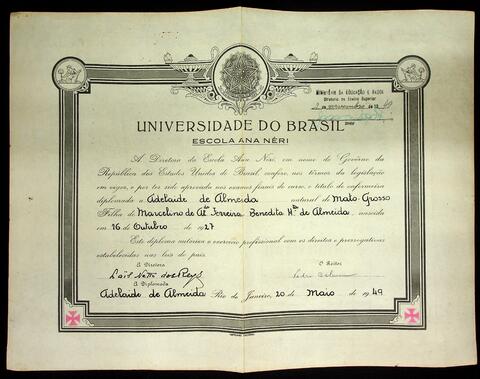 MINISTÉRIO DA EDUCAÇÃO E SAÚDE
Diretoria do Ensino Superior
UNIVERSIDADE DO BRASIL
ESCOLA ANA NÉRI
A Diretora da Escola Ana Néri, em nome do Govêrno da
República dos Estados Unidos do Brasil, confere, nos têrmos da legislação
em vigor, e por ter sido aprovada nos exames finais do curso, o título de enfermeira
diplomada a Adelaide de Almeida natural de Mato Grosso
Filha de Marcelino de Al. Ferreira, Benedita Mª de Almeida, nascida
em 16 de Outubro de 1927
Este diploma autoriza o exercício profissional com os direitos e prerrogativas
estabelecidas nas leis do país.
A Diretora O Reitor
Laís Netto dos Reys
A Diplomada
Adelaide de Almeida Rio de Janeiro, 20 de Maio de 1949